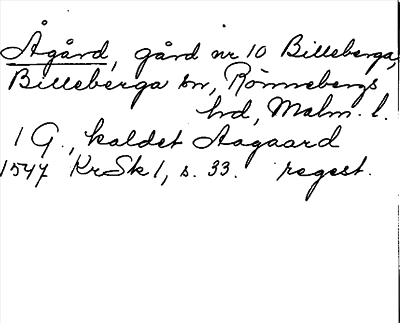 Ågård, gård nr 10 Billeberga,
Billeberga sn, Rönnebergs
hd, Malm. l.
1 G., kaldet Aagaard
1547 KrSk 1, s. 33. regest.